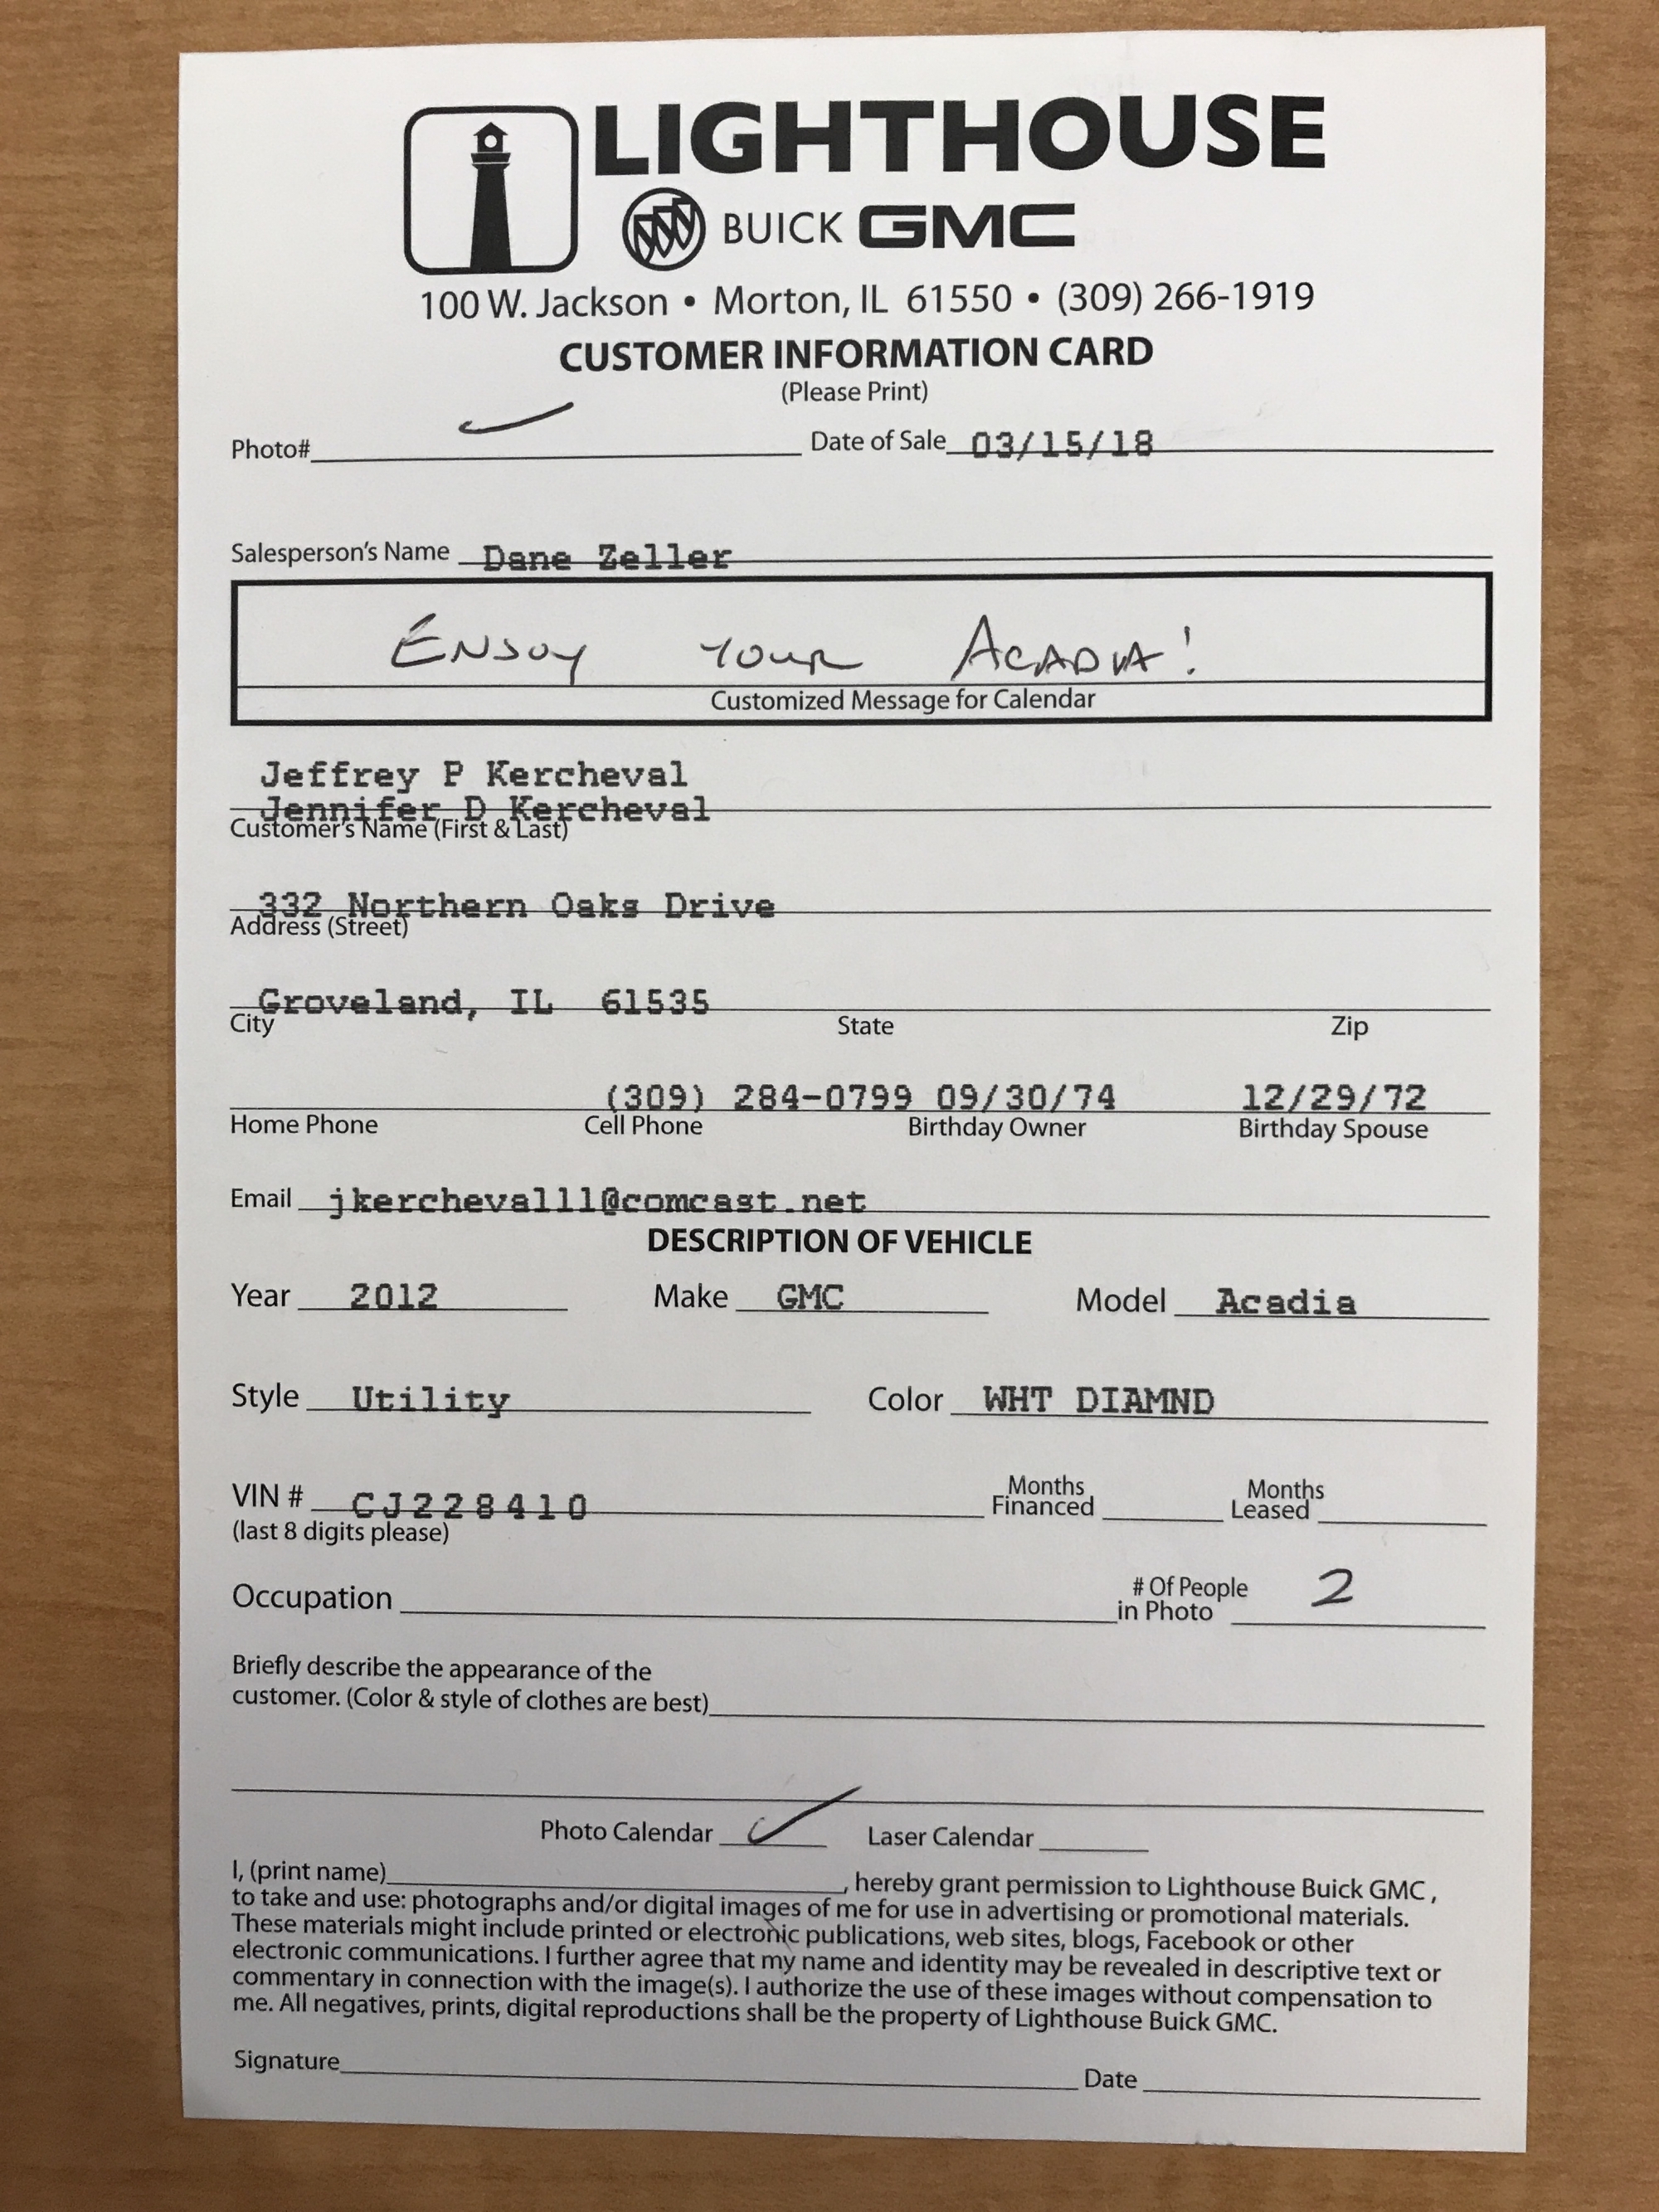 LIGHTHOUSE
BUICK GMC
100 W. Jackson • Morton, IL 61550 • (309) 266-1919
CUSTOMER INFORMATION CARD
(Please Print)
Photo# Date of Sale 03/15/18
Salesperson's Name Dane Zeller
ENJOY YOUR ACADIA!
Customized Message for Calendar
Jeffrey P Kercheval
Jennifer D Kercheval
Customer's Name (First & Last)
332 Northern Oaks Drive
Address (Street)
Groveland, IL 61535
City State Zip
(309) 284-0799 09/30/74 12/29/72
Home Phone Cell Phone Birthday Owner Birthday Spouse
Email jkercheval11@comcast.net
DESCRIPTION OF VEHICLE
Year 2012 Make GMC Model Acadia
Style Utility Color WHT DIAMND
VIN # CJ228410 Months Financed Months Leased
(last 8 digits please)
Occupation # Of People in Photo 2
Briefly describe the appearance of the
customer. (Color & style of clothes are best)
Photo Calendar ✓ Laser Calendar
I, (print name) , hereby grant permission to Lighthouse Buick GMC,
to take and use: photographs and/or digital images of me for use in advertising or promotional materials.
These materials might include printed or electronic publications, web sites, blogs, Facebook or other
electronic communications. I further agree that my name and identity may be revealed in descriptive text or
commentary in connection with the image(s). I authorize the use of these images without compensation to
me. All negatives, prints, digital reproductions shall be the property of Lighthouse Buick GMC.
Signature Date